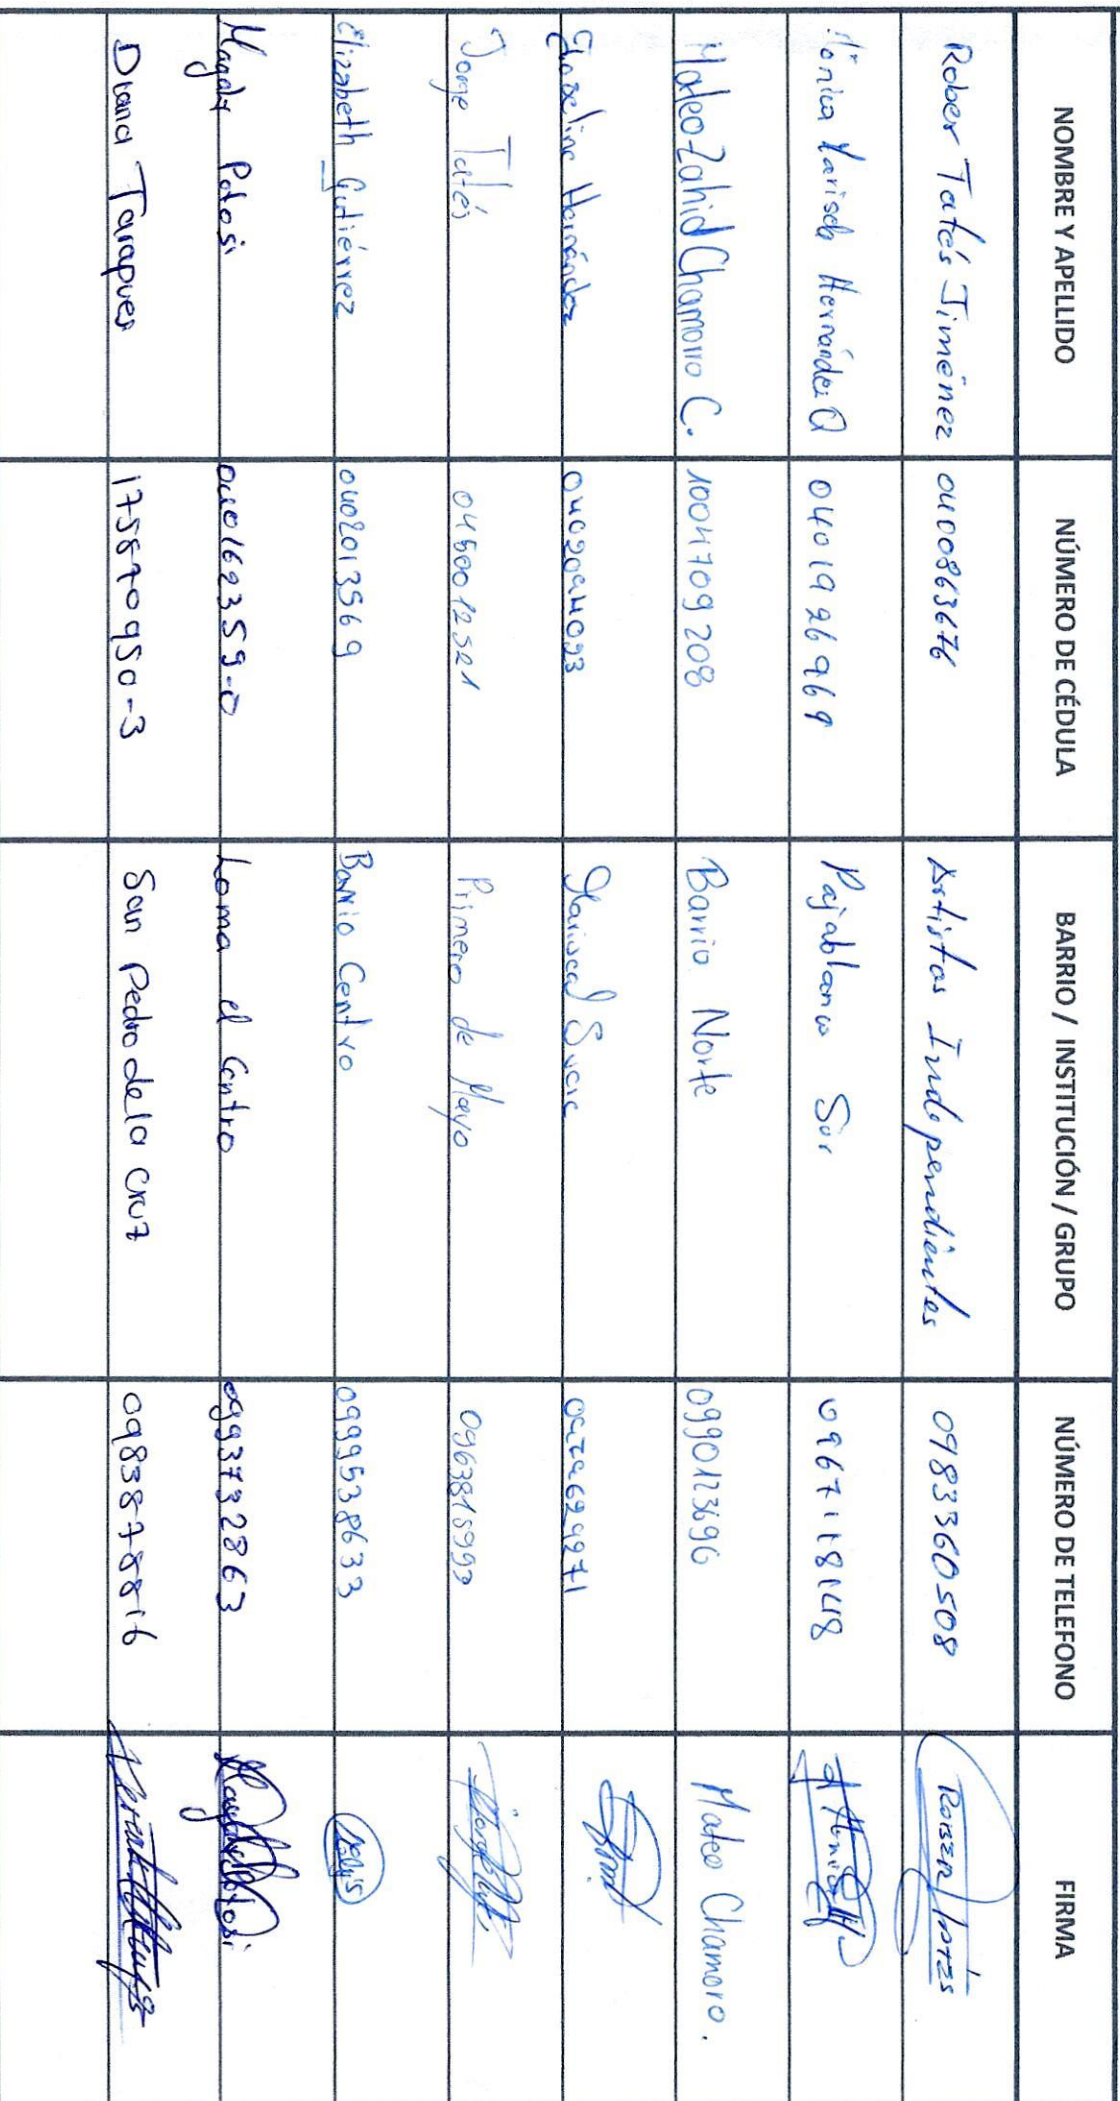 NOMBRE Y APELLIDO NÚMERO DE CÉDULA BARRIO / INSTITUCIÓN / GRUPO NÚMERO DE TELEFONO FIRMA
Rober Tatés Jiménez 0400863676 Artistas Independientes 0983360508 Rober Tatés
Mónica Marisela Hernández Q 0401926969 Pajablanca Sur 0967118148
Mateo Zahid Chamorro C. 1004709208 Barrio Norte 0990123696 Mateo Chamorro.
Joseline Hernández 0402094093 Mariscal Sucre
Jorge Tatés 0450012521 Primero de Mayo 0963815993
Elizabeth Gutiérrez 0402013569 Barrio Centro 0999538633
Magaly Potosi 040162359-0 Loma el Centro 0993732863 Magaly Potosi
Diana Tarapues 175870950-3 San Pedro de la Cruz 0983878816